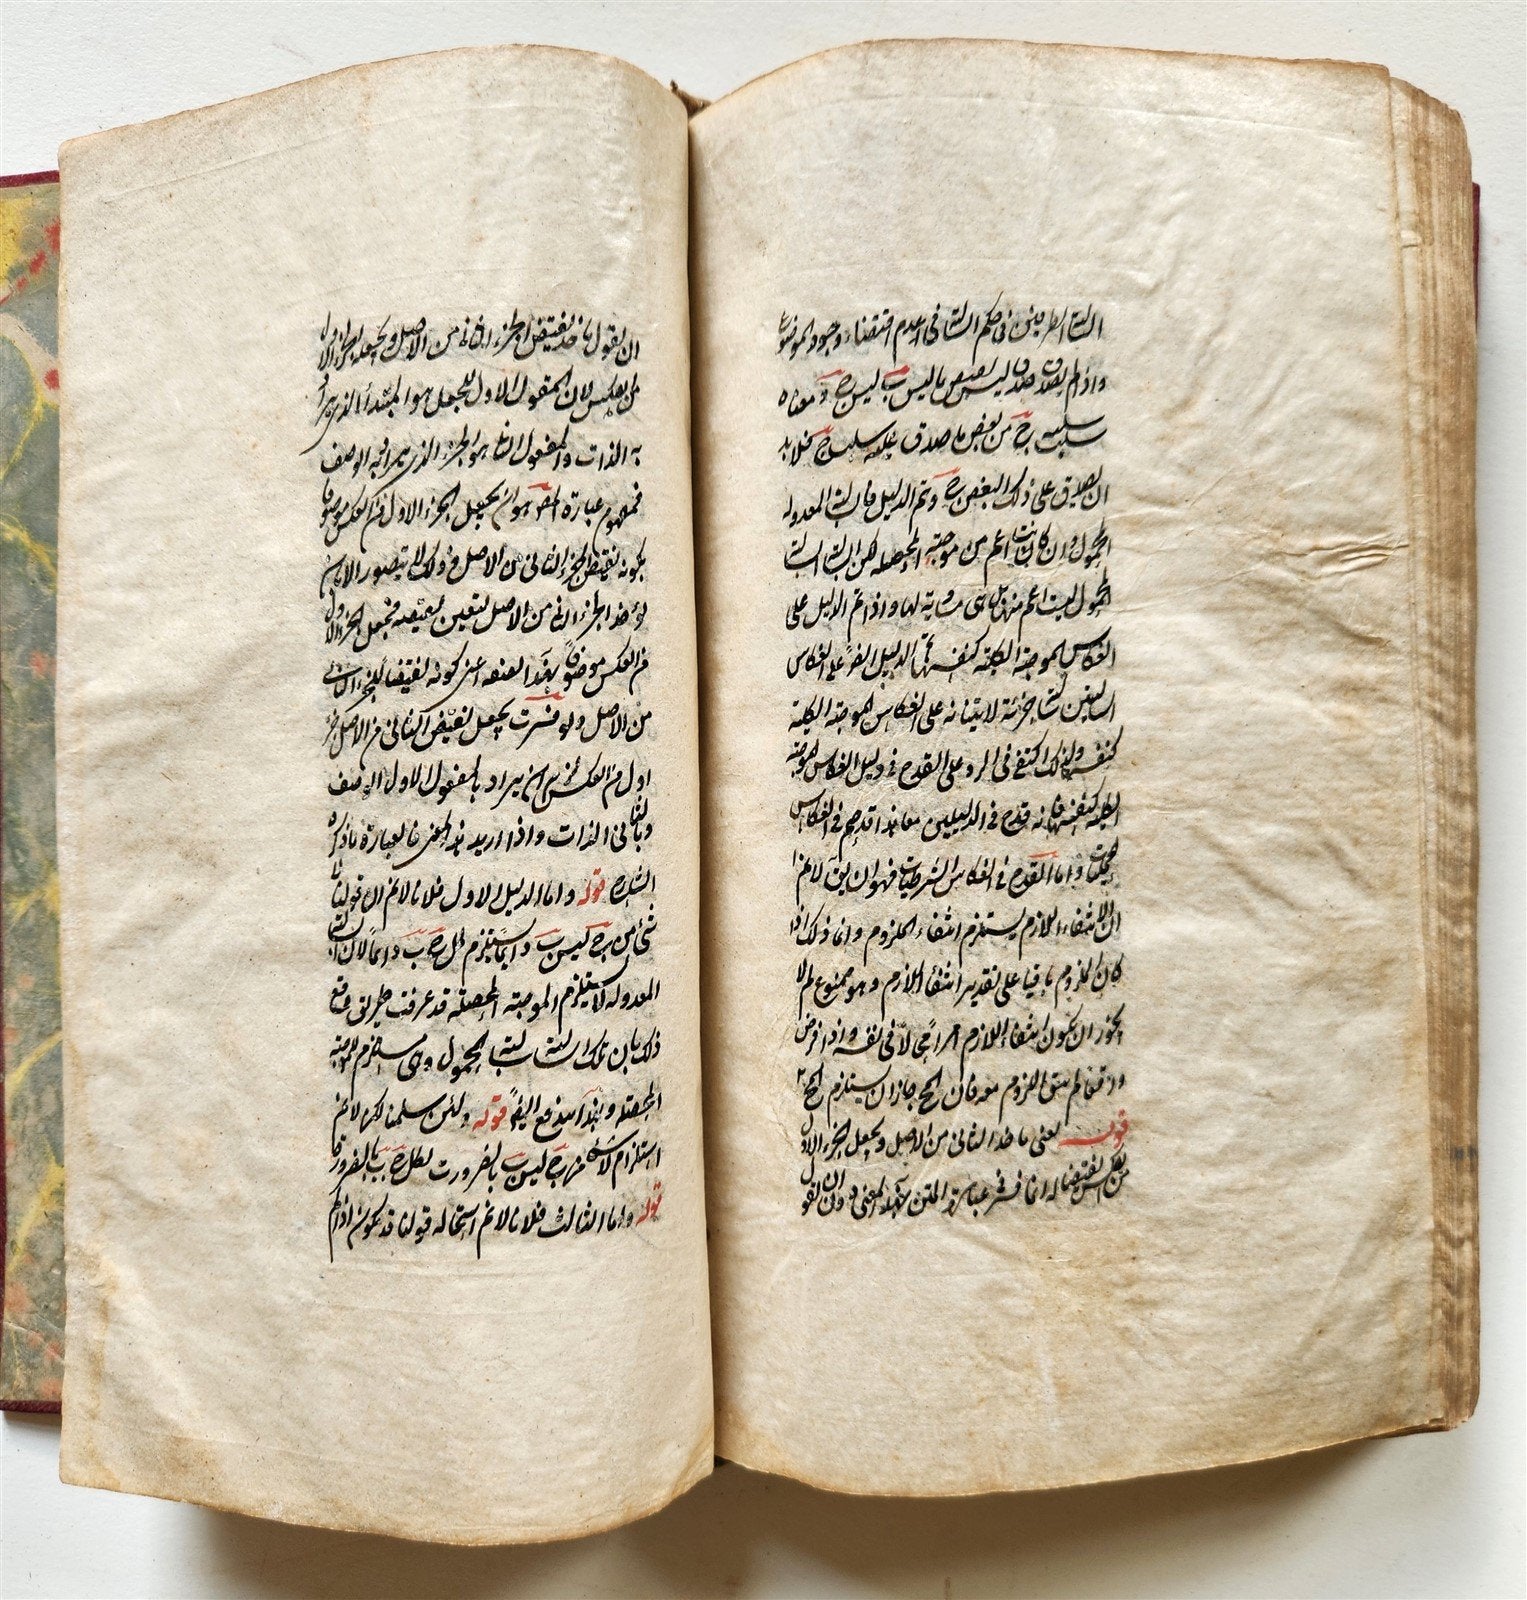 في حكم السالبة في عدم اقتضاء وجود الموضوع
واذا لم يصدق صدق ليس بعض ما ليس ب ليس ج ومعناه
سلب سلب ج عن بعض ما صدق عليه سلب ب فلا بد
ان يصدق على ذلك البعض ج وتم الدليل فالسالبة المعدولة
المحمول وان كانت اعم من موجبة المحصلة لكن السالبة السالبة
المحمول ليست اعم منها بل هي مساوية لها واذا تم الدليل على
انعكاس الموجبة الكلية كنفسها تم الدليل ايضا على انعكاس
السالبتين لابتنائه على انعكاس الموجبة الكلية
كنفسها ولذلك اكتفى في الرد على القدح في دليل انعكاس الموجبة
الكلية كنفسها فانه قدح في الدليلين معا
واما القدح في انعكاس الشرطيات فهو ان يق لا نم
ان انتفاء اللازم يستلزم انتفاء الملزوم وانما ذلك اذا
كان الملزوم باقيا على تقدير انتفاء اللازم وهو ممنوع لم لا
يجوز ان يكون انتفاء اللازم امرا محالا في نفسه واذا فرض
لم يبق الملزوم معه فان المح جاز ان يستلزم المح
قوله يعني ناخذ الثاني من الاصل ويجعل الجزء الاول
من العكس نقيضا له انما فسر عبارة المتن بهذا المعنى دون ان يقول
ان يقول ناخذ نقيض الجزء الثاني من الاصل ويجعله الجزء الاول
من العكس لان المفعول الاول ليجعل هو المبتدأ الذي يراد
به الذات والمفعول الثاني هو الخبر الذي يراد به الوصف
فمفهوم عبارة المص هو ان يجعل الجزء الاول من العكس موصوفا
بكونه نقيض الجزء الثاني من الاصل وذلك لا يتصور الا بان
يؤخذ الجزء الثاني من الاصل ليتعين نقيضه فيجعل الجزء الاول
من العكس موصوفا بهذا الصفة اعني كونه نقيضا للجزء الثاني
من الاصل ولو فسرت بجعل نقيض الثاني من الاصل جزء
اول من العكس لزم ان يراد بالمفعول الاول الوصف
وبالثاني الذات واذا اريد هذا المعنى فالعبارة ما ذكره
الشارح قوله واما الدليل الاول فلانا لا نم ان قولنا لا
شئ من ج ليس ب دائما يستلزم كل ج ب دائما لان السالبة
المعدولة لا تستلزم الموجبة المحصلة قد عرفت طريق دفع
ذلك بان تلك السالبة سالبة المحمول وهي مستلزم للموجبة
المحصلة وبهذا يندفع ايضا قوله ولئن سلمنا لكن لا نم
استلزام لا شئ من ج ليس ب بالضرورة لكل ج ب بالضرورة
قوله واما الثالث فلانا لا نم استحالة قولنا قد يكون اذا لم